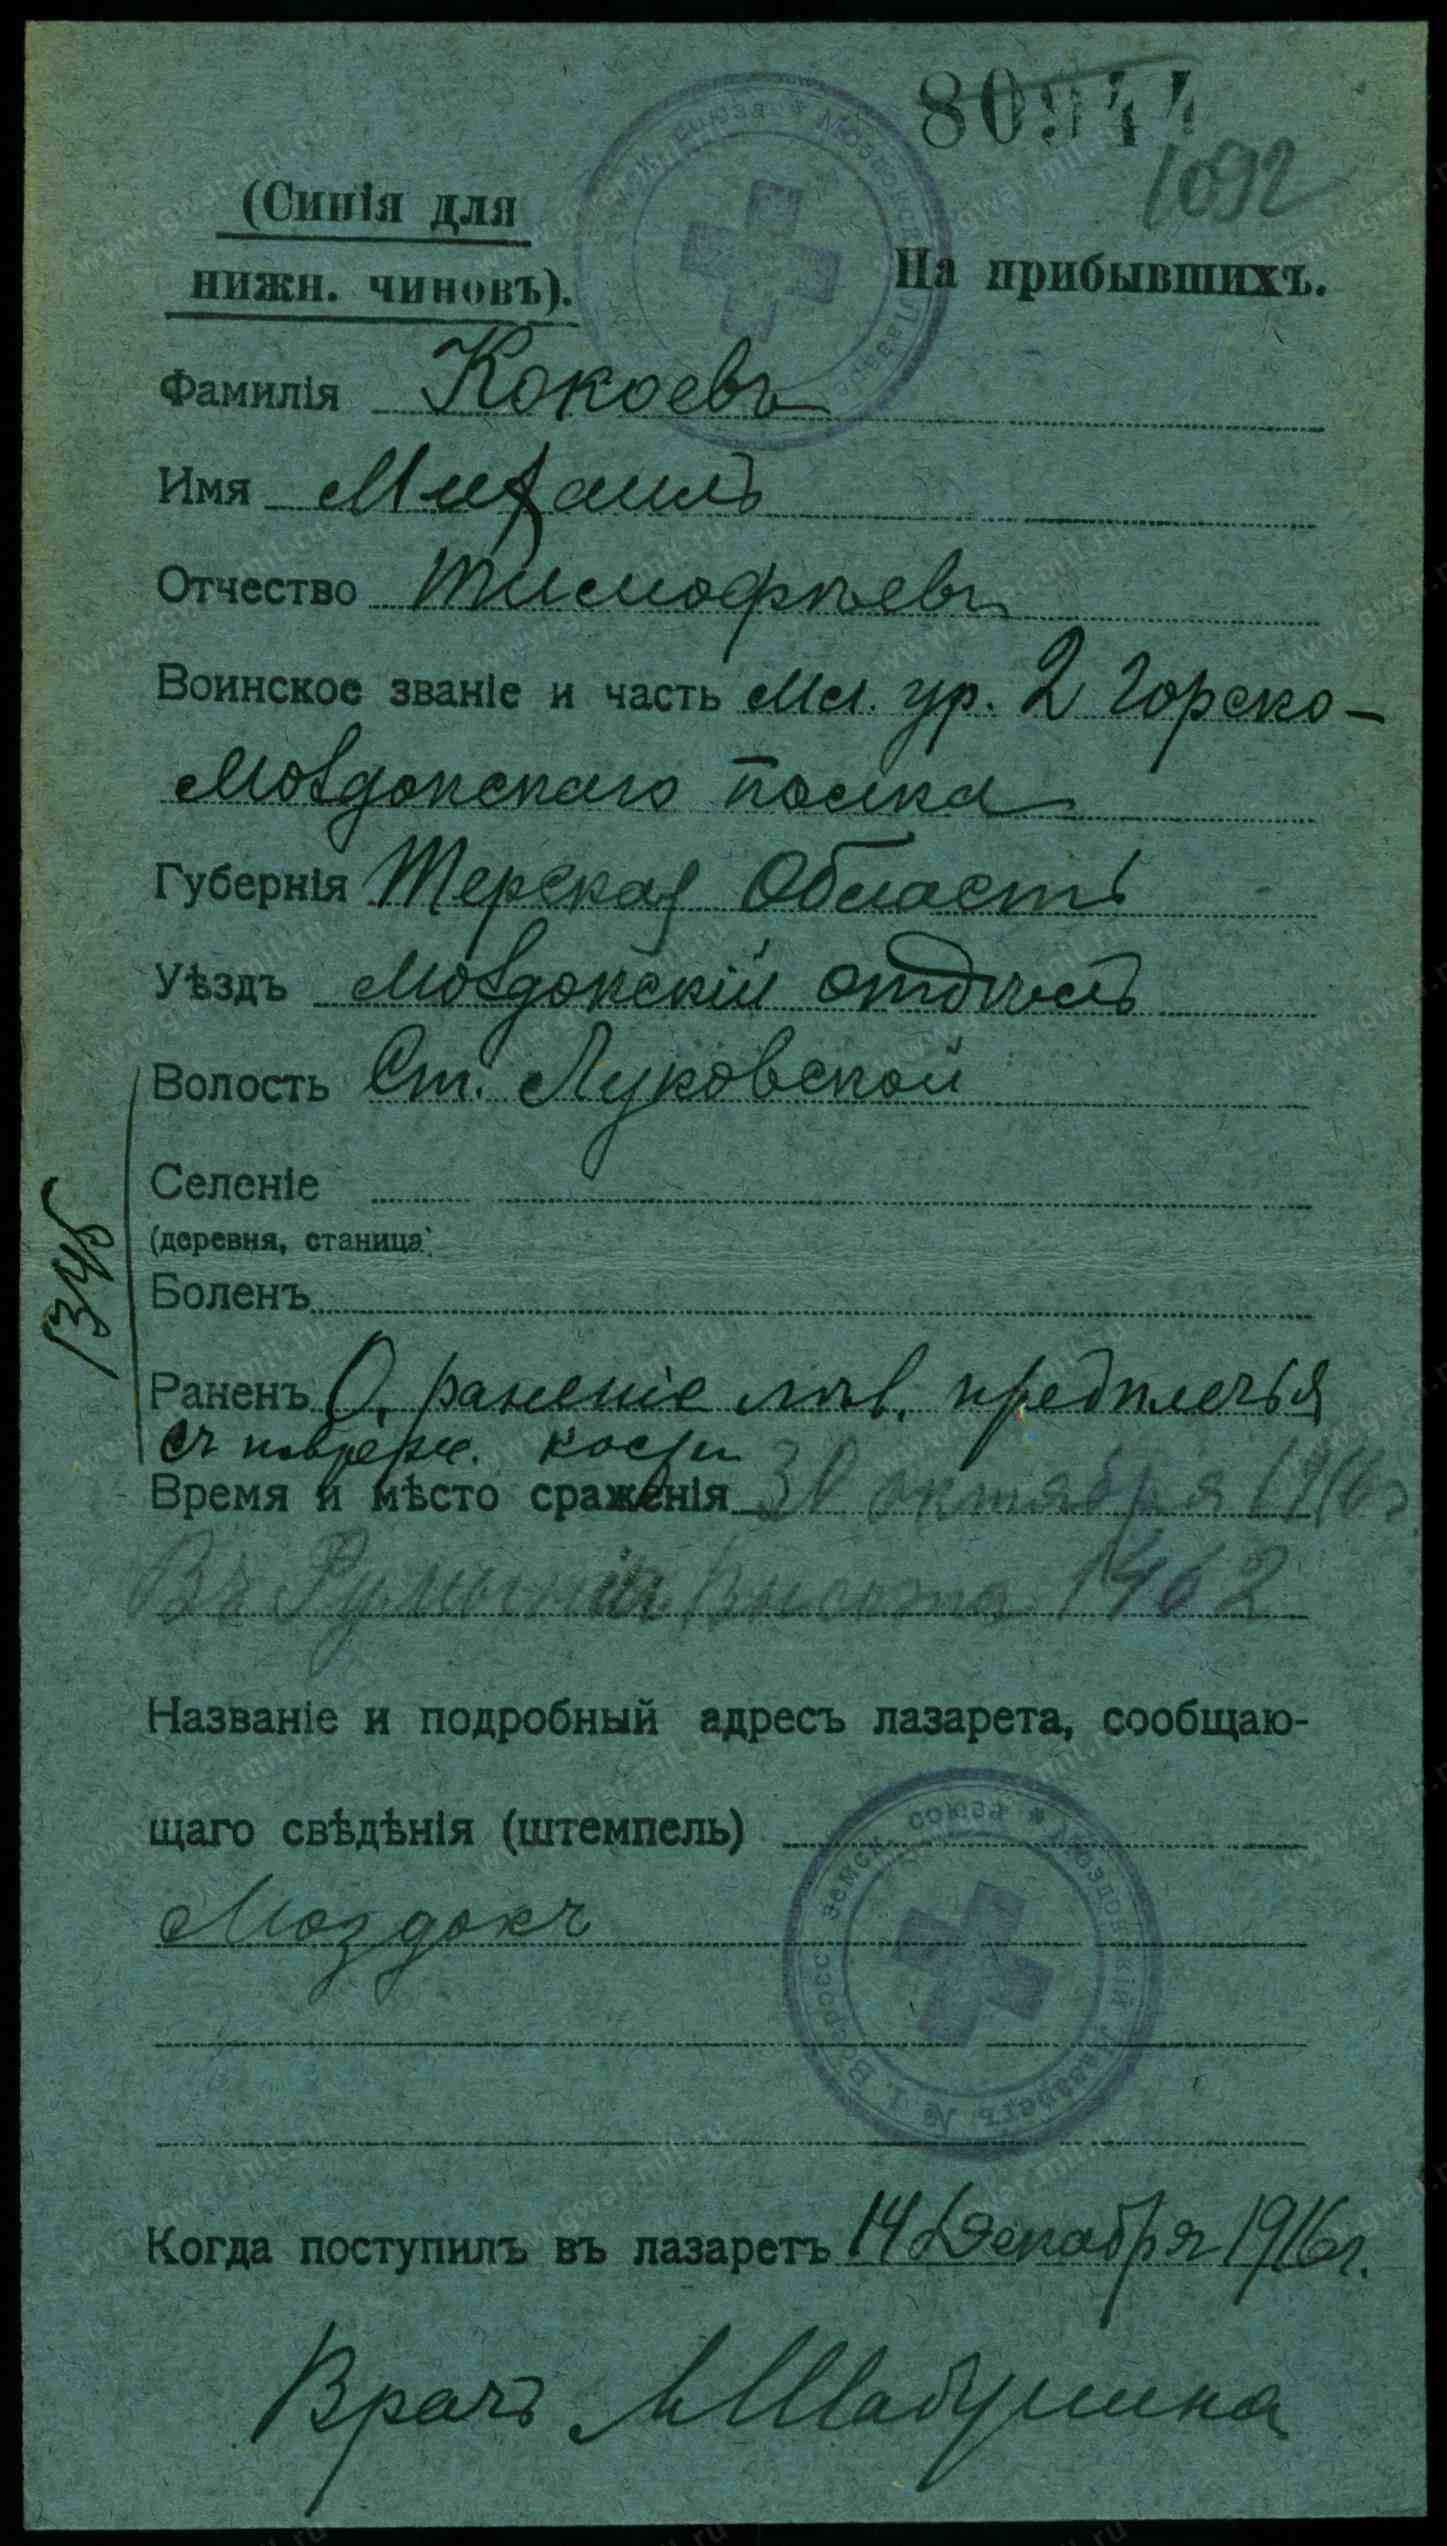 80944
1092
(Синія для
нижн. чиновъ).
На прибывшихъ.
Фамилія Кокоевъ
Имя Михаилъ
Отчество Тимофѣевъ
Воинское званіе и часть Мл. ур. 2 Горско-
Моздокскаго полка
Губернія Терская Область
Уѣздъ Моздокскій отдѣлъ
Волость Ст. Луковской
Селеніе
(деревня, станица)
Боленъ
1345
Раненъ О. раненіе лѣв. предплечья
съ поврежд. кости
Время и мѣсто сраженія 30 октября 1916 г.
Въ Румыніи, высота 1462
Названіе и подробный адресъ лазарета, сообщаю-
щаго свѣдѣнія (штемпель)
Моздокъ
Всеросс. земск. союза * Моздокскій Лазаретъ № 1.
Когда поступилъ въ лазаретъ 14 Декабря 1916 г.
Врачъ